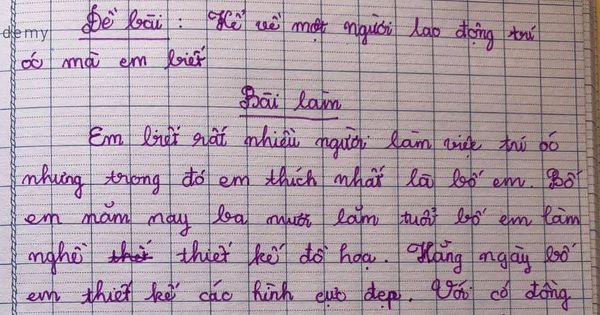 Đề bài : Kể về một người lao động trí
demy
óc mà em biết
Bài làm
Em biết rất nhiều người làm việc trí óc
nhưng trong đó em thích nhất là bố em. Bố
em năm nay ba mươi lăm tuổi bố em làm
nghề thiết thiết kế đồ hoạ. Hằng ngày bố
em thiết kế các hình cực đẹp. Với có đồng